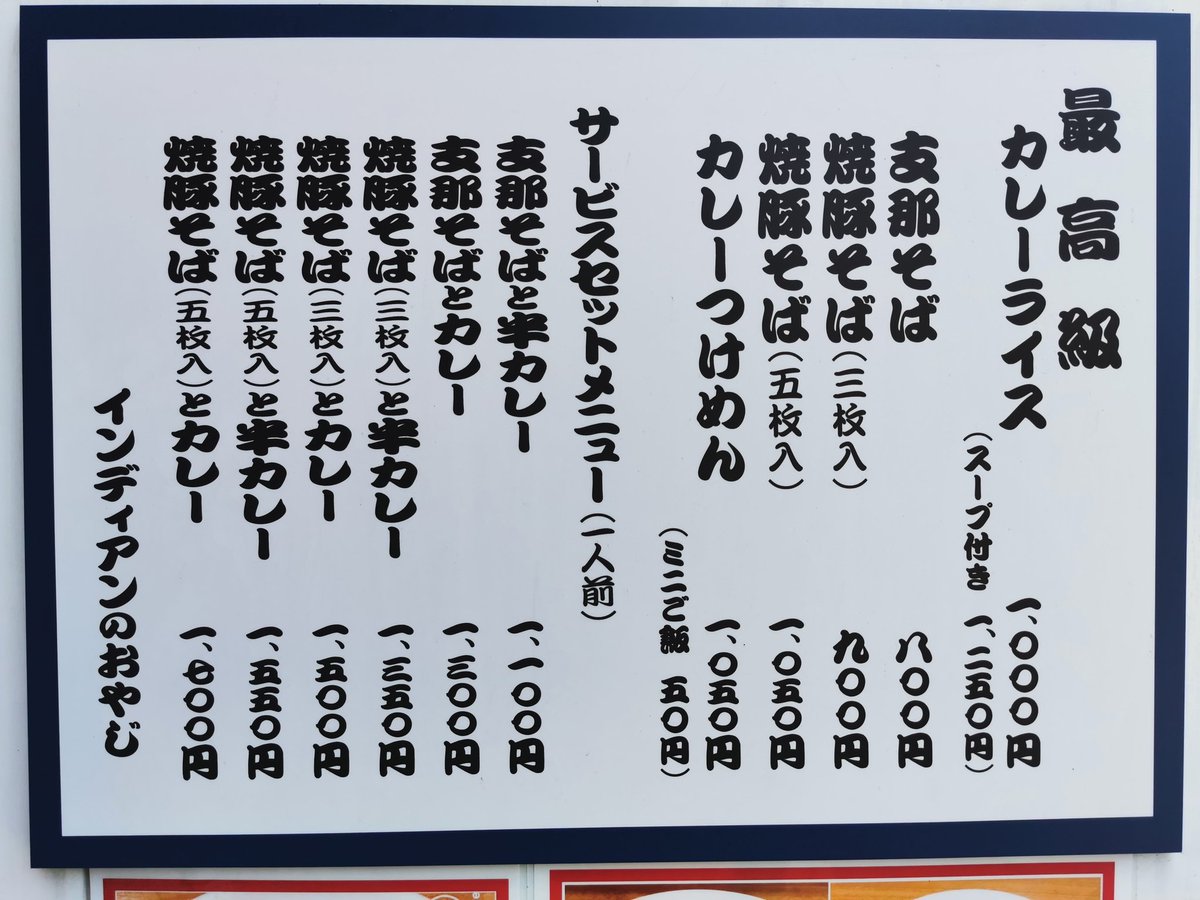 最高級
カレーライス 一、〇〇〇円
(スープ付き 一、二五〇円)
支那そば 八〇〇円
焼豚そば(三枚入) 九〇〇円
焼豚そば(五枚入) 一、〇五〇円
カレーつけめん 一、〇五〇円
(ミニご飯 五〇円)
サービスセットメニュー(一人前)
支那そばと半カレー 一、一〇〇円
支那そばとカレー 一、三〇〇円
焼豚そば(三枚入)と半カレー 一、三五〇円
焼豚そば(三枚入)とカレー 一、五〇〇円
焼豚そば(五枚入)と半カレー 一、五五〇円
焼豚そば(五枚入)とカレー 一、七〇〇円
インディアンのおやじ